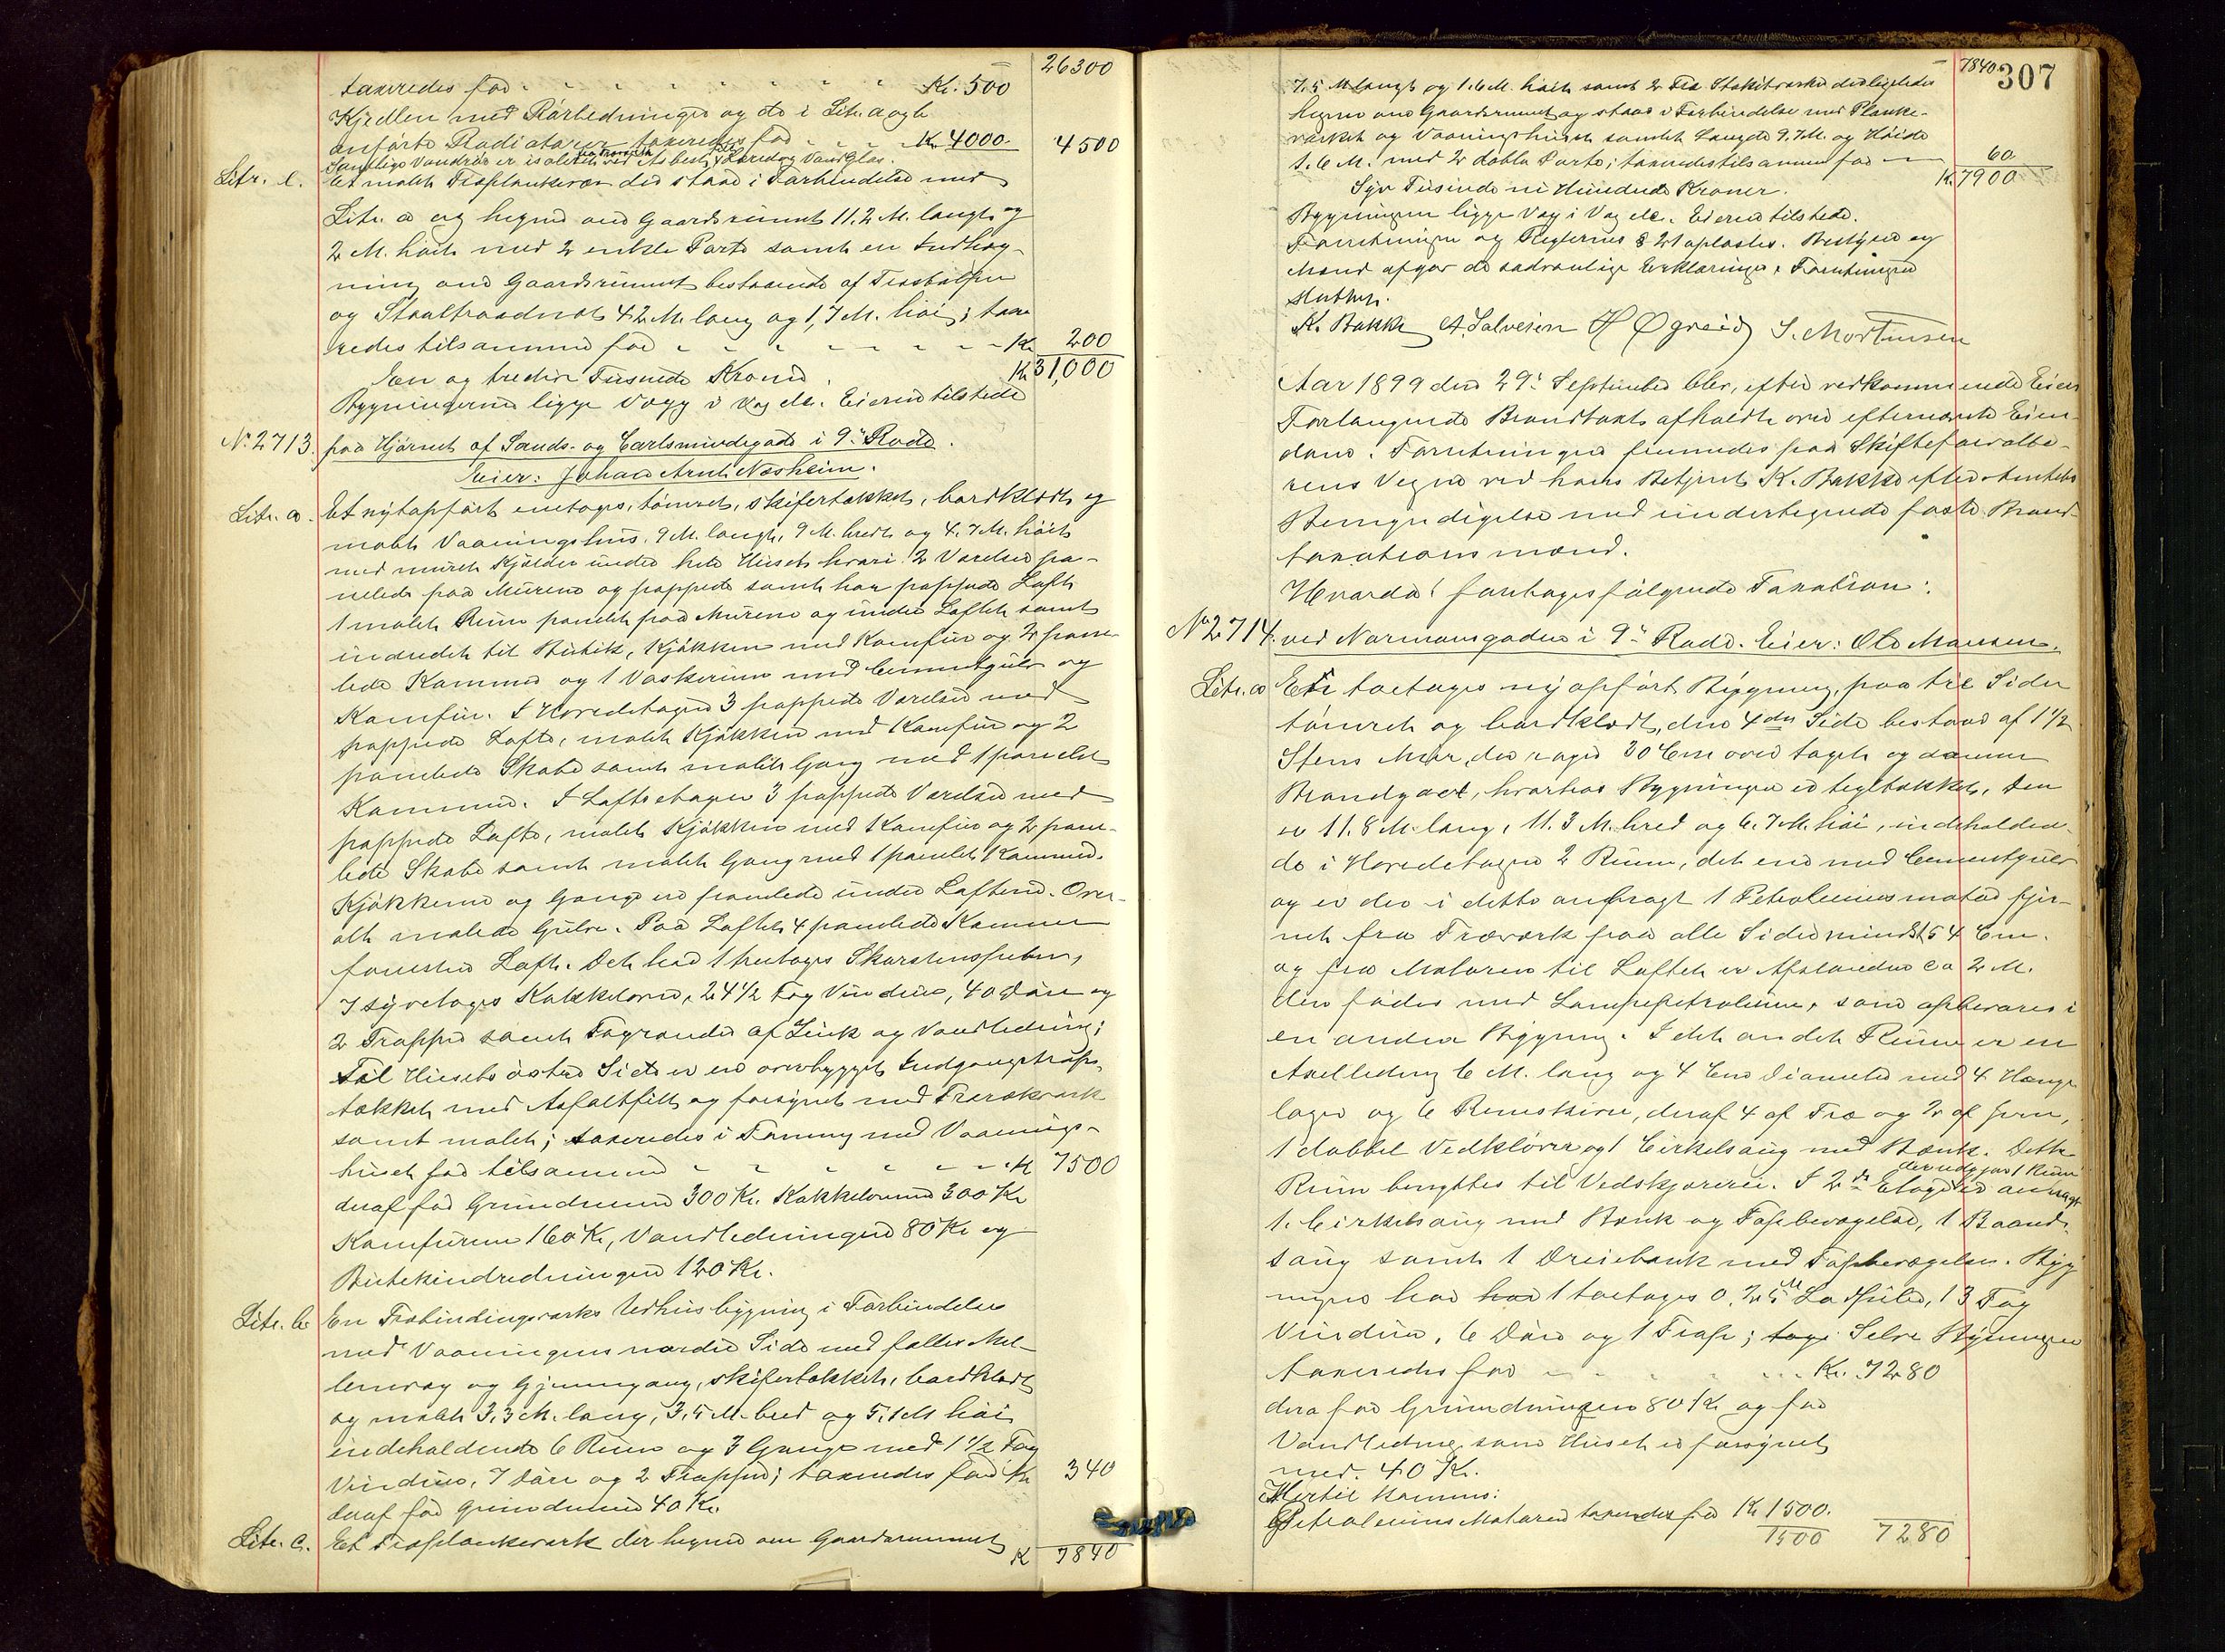 26300
taxeredes for - - - - - - - - Kr. 500
Kjedlen med Rørledninger og de i Litr. a og b
anførte Radiatorer taxeredes for - - - Kr. 4000 4500
Samtlige Vandrør er isoleret fra Træværk ved Asbest, og Vandglas.
Litr. c. Et malet Træplankeværk der staar i Forbindelse med
Litr. a og hegner om Gaardsrummet 11.2 M. langt og
2 M. høit med 2 enkle Porte samt en Indheg-
ning om Gaardsrummet bestaaende af Træstolper
og Staaltraadnet 42 M. lang og 1,7 M. høi; taxe
redes tilsammen for - - - - - - - Kr 200
Een og tredive Tusinde Kroner. Kr 31,000
Bygningerne ligge Væg i Væg etc. Eieren tilstede
No. 2713. paa Hjørnet af Sands- og Carlsmindegade i 9de Rode.
Eier: Johan Arnt Næsheim.
Litr. a. Et nyopført enetages, tømret, skifertækket, bordklædt og
malet Vaaningshus. 9 M. langt, 9 M. bredt og 4.7 M. høit
med muret Kjelder under hele Huset hvori 2 Værelser pa-
nelede paa Murene og pappede samt har pappede Loft
1 malet Rum panelet paa Murene og under Loftet samt
indredet til Butik, Kjøkken med Komfur og 2 pane-
lede Kammer og 1 Vaskerum med Cementgulv og
Komfur. I Hovedetagen 3 pappede Værelser med
pappede Lofte, malet Kjøkken med Komfur og 2
panelede Skabe samt malet Gang med 1 panelet
Kammer. I Loftsetagen 3 pappede Værelser med
pappede Lofte, malet Kjøkken med Komfur og 2 pane-
lede Skabe samt malet Gang med 1 panelet Kammer.
Kjøkkerne og Gange er panelede under Lofterne. Over-
alt malede Gulve. Paa Loftet 4 panelede Kammer
foruden Loft. Det har 1 treetages Skorstenspiber,
7 syvetages Kakkelovne, 24 1/2 Fag Vinduer, 40 Døre og
2 Trapper samt Tagrender af Zink og Vandledning;
Til Husets østre Side er en overbygget Indgangstrappe,
tækket med Asfaltfilt og forsynet med
samt malet; taxeredes i Forening med Vaanings-
huset for tilsammen - - - - - - - Kr 7500
deraf for Grundmuren 300 Kr. Kakkelovnene 300 Kr
Komfurene 160 Kr, Vandledningen 80 Kr og
Butikindredningen 120 Kr.
Litr. b. En Træbindingsværks Udhusbygning i Forbindelse
med Vaaningens nordre Side med fælles Mel-
lemvæg og Gjennemgang, skifertækket, bordklædt
og malet 3,3 M. lang, 3,5 M. bred og 5,1 M høi
indeholdende 6 Rum og 3 Gange med 1 1/2 Fag
Vinduer, 7 Døre og 2 Trapper; taxeredes for Kr 340
deraf for Grundmuren 40 Kr.
Litr. c. Et Træplankeværk der hegner om Gaardsrummet
K 7840
7840 307
7.5 M langt og 1.6 M. høit samt 2 Træ Stakitværker der ligeledes
hegner om Gaardsrummet og staar i Forbindelse med Planke-
værket og Vaaningshuset samlet Længde 9.7 M. og Høide
1.6 M. med 2 doble Porte; taxeredes tilsammen for - 60
Kr. 7900
Syv Tusinde ni Hundrede Kroner.
Bygningerne ligge Væg i Væg etc. Eieren tilstede.
Forretningen og Reglernes § 21 oplæstes. Bestyrer og
Mænd afgav de sædvanlige Erklæringer. Forretningen
sluttet.
K. Bakke A. Salvesen H Øgreid S. Mortensen
Aar 1899 den 29de September blev, efter vedkommende Eieres
Forlangende Brandtaxt afholdt over efternævnte Eien-
dom. Forretningen fremmedes paa Skifteforvalte-
rens Vegne ved hans Betjent K. Bakke efter Amtets
Bemyndigelse med undertegnede faste Brand-
taxationsmænd.
Hvorda foretoges følgende Taxation:
No 2714. ved Normansgaden i 9de Rode. Eier: Ole Mausen.
Litr. a En toetages nyopført Bygning, paa tre Sider
tømret og bordklædt, den 4de Side bestaar af 1 1/2
Stens Mur, der rager 30 Cm over taget og danner
Brandgavl, hvorhos Bygningen er tegltækket, den
er 11.8 M. lang, 11.3 M. bred og 6.7 M. høi, indeholden-
de i Hovedetagen 2 Rum, det ene med Cementgulv
og er der i dette anbragt 1 Petroleumsmotor fjer-
net fra Træværk paa alle Sider mindst 54 Cm.
og fra Motoren til Loftet er Afstanden ca 2 M.
den fødes med Lampepetroleum, som opbevares i
en anden Bygning. I det andet Rum er en
Axelledning 6 M. lang og 4 Cm Diameter med 4 Hænge
lager og 6 Remskiver, deraf 4 af Træ og 2 af Jern,
1 dobbel Vedkløver og 1 Cirkelsaug med Bænk. Dette
Rum benyttes til Vedskjæreri. I 2den Etage der udgjør 1 Rum er anbragt
1. Cirkelsaug med Bænk og Tapbevægelse, 1 Baand-
saug samt 1 Dreiebænk med Tapbevægelse. Byg
ningen har 1 toetages 0,25 M Lodpibe, 13 Fag
Vinduer, 6 Døre og 1 Trap; Selve Bygningen
taxeredes for - - - - - - - Kr. 7280
deraf for Grundmuren 80 Kr og for
Vandledning, som Huset er forsynet
med. 40 Kr.
Hertil kommer:
Petroleums Motoren taxeredes for Kr 1500.
1500 7280